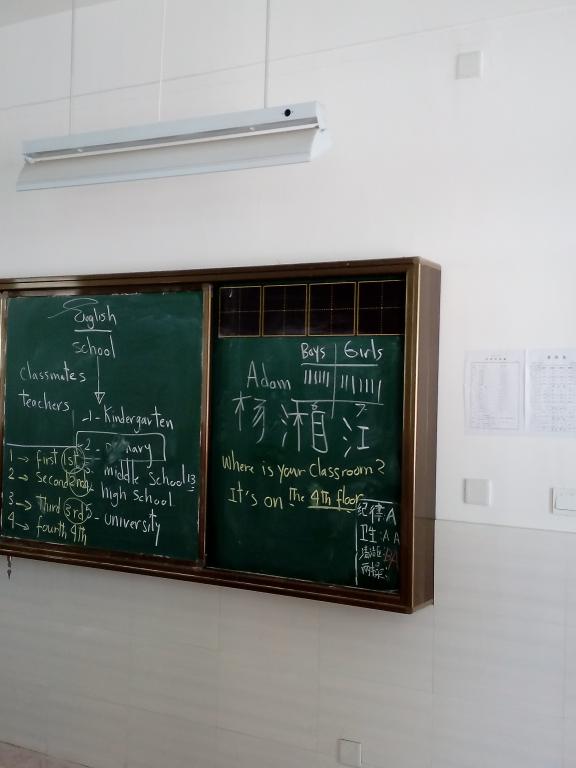 English
school
classmates
teachers
1 - Kindergarten
2 -
middle School 13
high School
5 - university
1 → first 1st
2 → Second 2nd
3 → Third 3rd
4 → fourth 4th
Boys Girls
Adam
杨 湘 江
Where is your Classroom?
It's on The 4th floor
纪律:A
卫生:A A